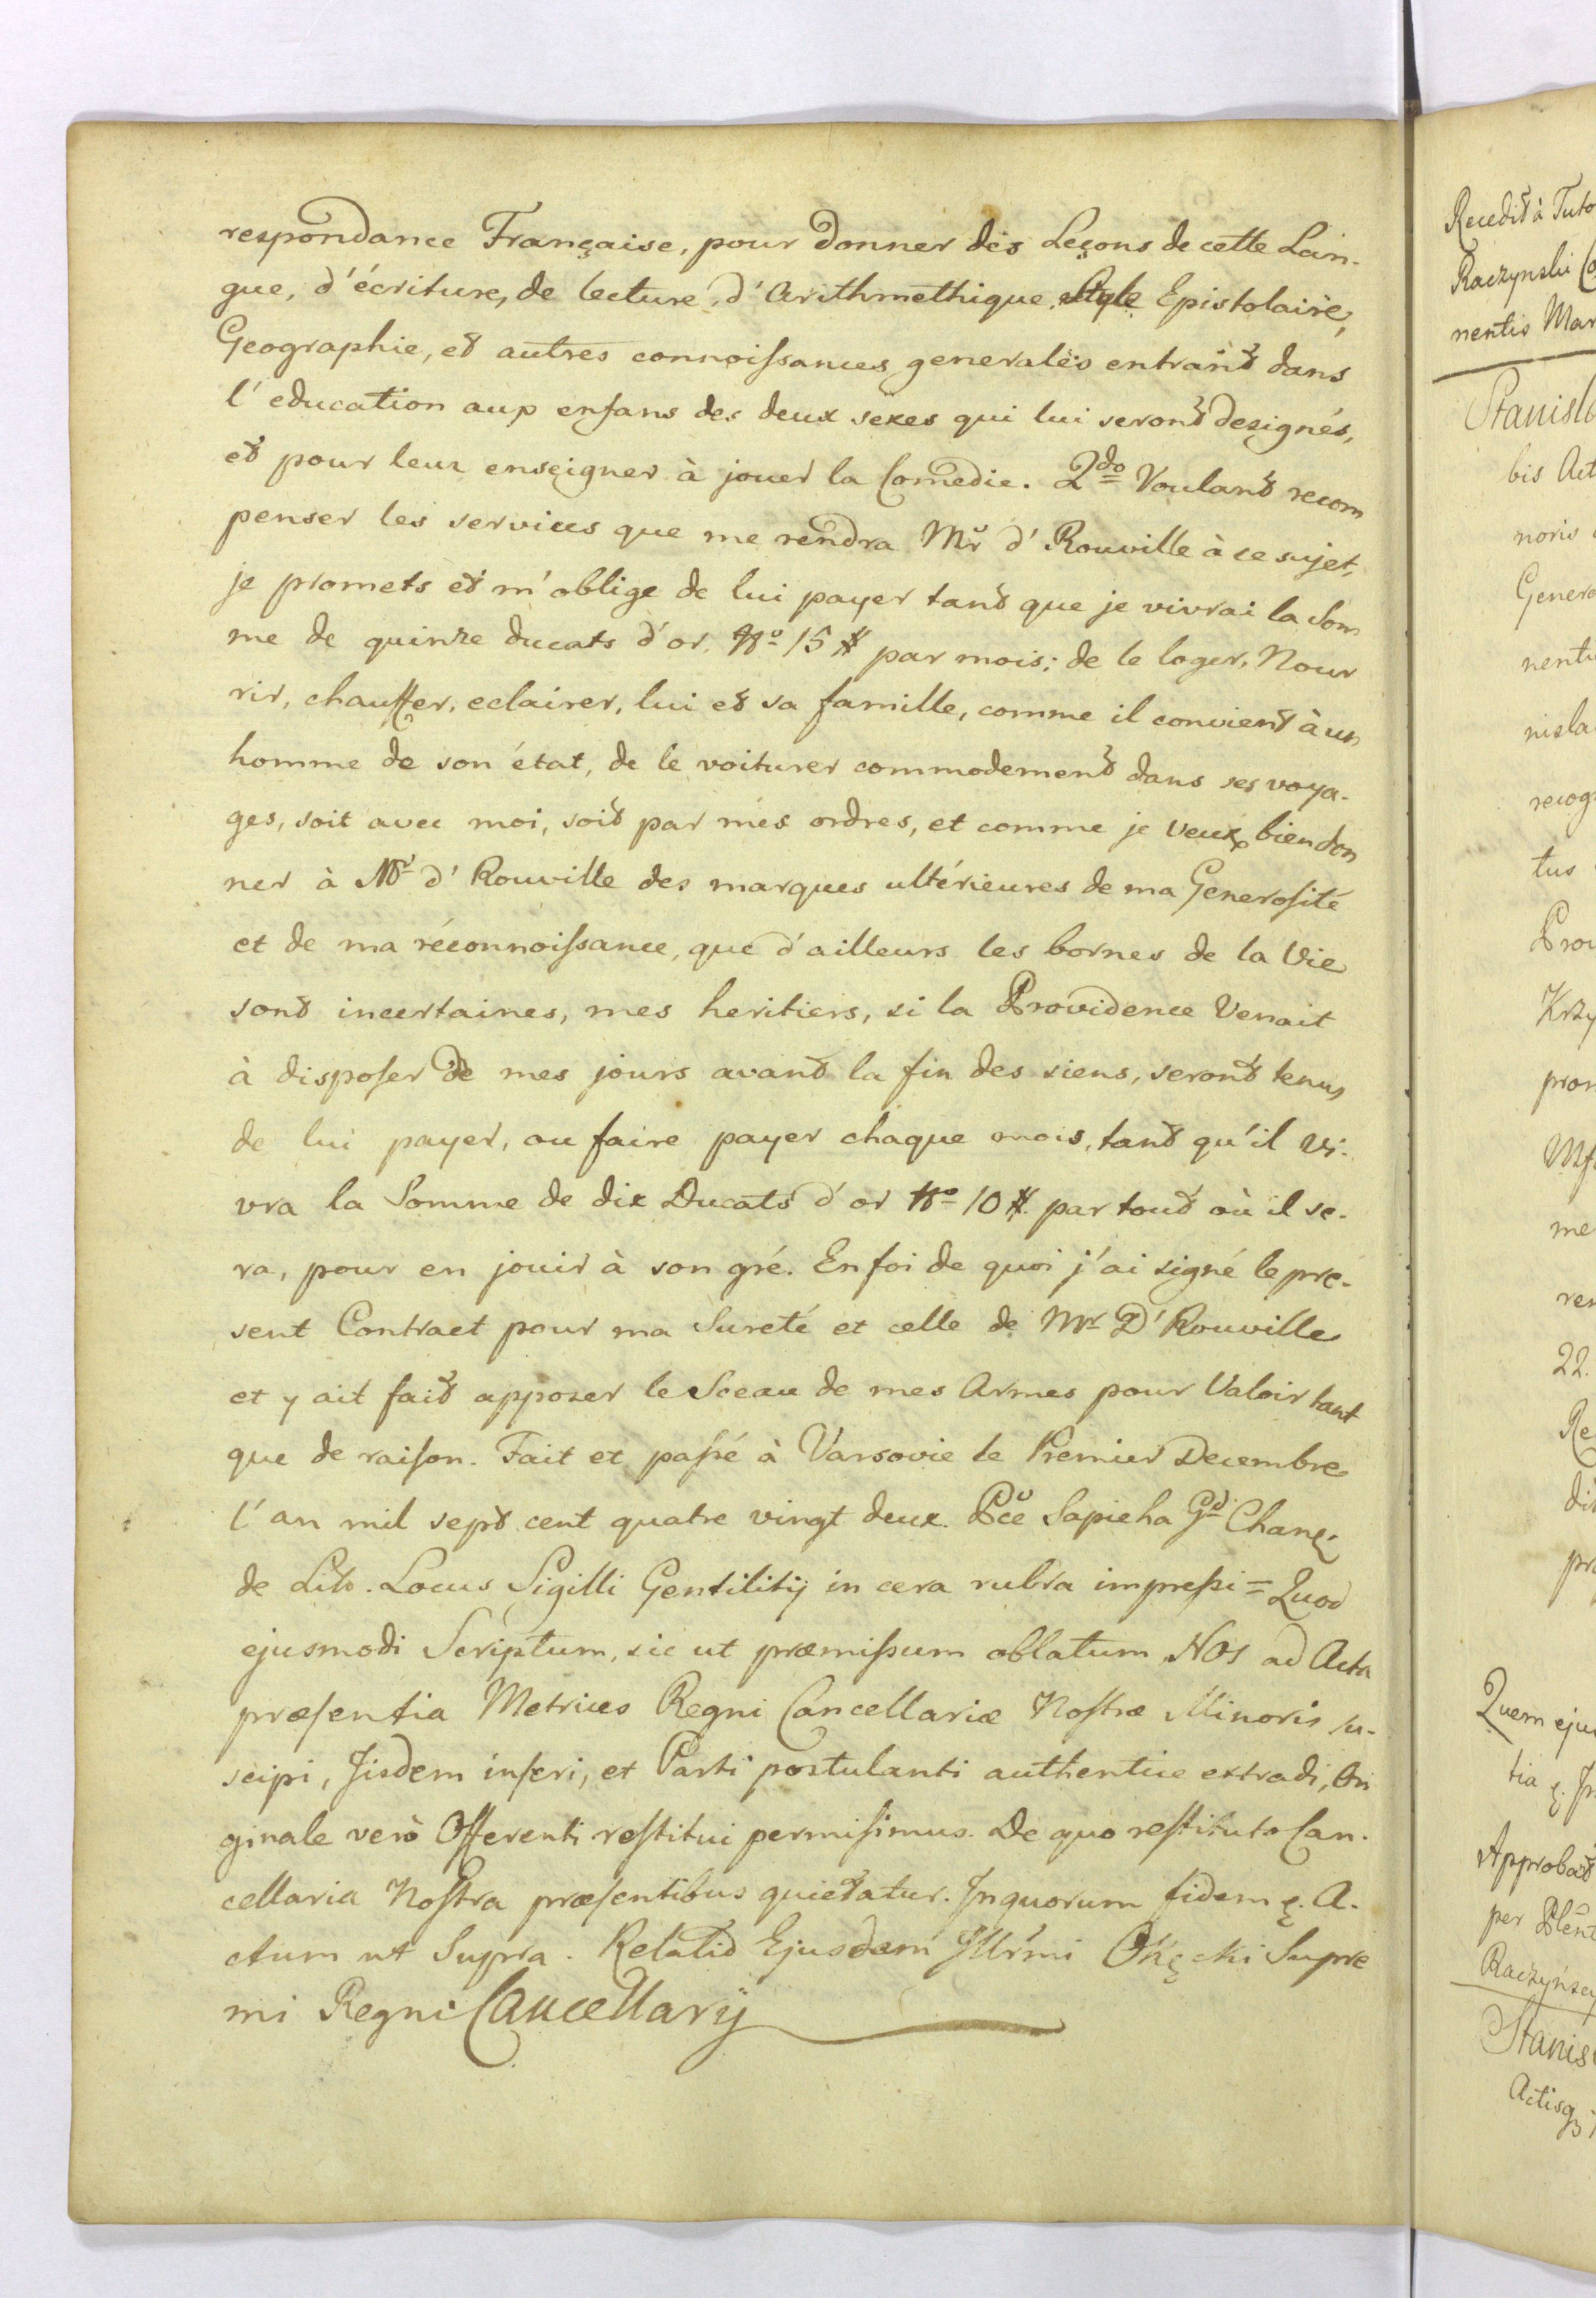 respondance Française, pour donner des Leçons de cette Lan-
gue, d'écriture, de lecture, d'Arithmethique, Style Epistolaire,
Geographie, et autres connoissances generales entrant dans
l'education aux enfans des deux sexes qui lui seront designés,
et pour leur enseigner à jouer la Comedie. 2do Voulant recom
penser les services que me rendra Mr d'Rouville à ce sujet,
je promets et m'oblige de lui payer tant que je vivrai la Som
me de quinze ducats d'or. No 15 # par mois; de le loger, Nour
rir, chauffer, eclairer, lui et sa famille, comme il convient à un
homme de son état, de le voiturer commodement dans ses voya-
ges, soit avec moi, soit par mes ordres, et comme je veux bien don
ner à Mr d'Rouville des marques ultérieures de ma Generosité
et de ma réconnoissance, que d'ailleurs les bornes de la Vie
sont incertaines, mes heritiers, si la Providence Venait
à disposer de mes jours avant la fin des siens, seront tenus
de lui payer, ou faire payer chaque mois, tant qu'il vi-
vra la Somme de dix Ducats d'or No 10 #. par tout où il se-
ra, pour en jouir à son gré. En foi de quoi j'ai signé le pre-
sent Contract pour ma Sureté et celle de Mr D'Rouville
et y ait fait apposer le Sceau de mes Armes pour Valoir tant
que de raison. Fait et passé à Varsovie le Premier Decembre
l'an mil sept cent quatre vingt deux. Pce Sapieha Gd Chanc.
de Lith. Locus Sigilli Gentilitij in cera rubra impressi = Quod
ejusmodi Scriptum, sic ut præmissum oblatum Nos ad Acta
præsentia Metrices Regni Cancellariæ Nostræ Minoris su-
scipi, Iisdem inseri, et Parti postulanti authentice extradi, Ori
ginale verò Offerenti restitui permisimus. De quo restituto Can-
cellaria Nostra præsentibus quietatur. In quorum fidem &. A-
ctum ut Supra. Relatio Ejusdem Illrmi Okęcki Supre
mi Regni Cancellarij
Recedit à Tuto
Raczynski Co
nentis Mar
Stanisla
bis Act
noris
Genera
nenti
nisla
recog
tus
Prov
Krzy
pron
me
ren
22.
Re
Quem ejus
tia &. In
Approbat
per Plent
Raczyńscy
Stanis
Actisq3